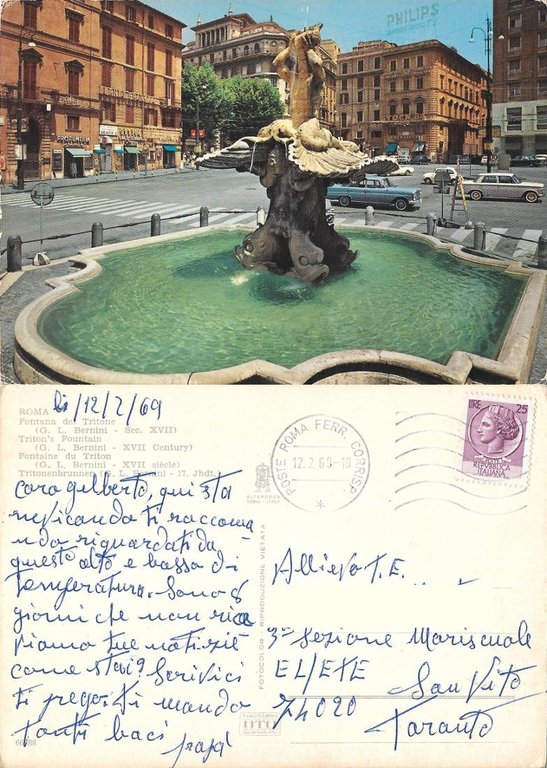 PHILIPS
ROMA
li/12/2/69
Fontana del Tritone
(G. L. Bernini - Sec. XVII)
Triton's Fountain
(G. L. Bernini - XVII Century)
Fontaine du Triton
(G. L. Bernini - XVII siècle)
Tritonenbrunnen (G. L. Bernini - 17. Jhdt.)
caro gilberto, qui sta
nevicando ti raccoma
ndo riguardati da
questo alto e bassa di
temperatura. Sono 8
giorni che non rice
viamo tue notizie
come stai? Scrivici
ti prego. ti mando
tanti baci
papà
66/88
ALTEROCCA
TERNI - ITALY
FOTOCOLOR. RIPRODUZIONE VIETATA
OTO
POSTE ROMA FERR. CORRISP.
12.2.69-18
LIRE 25
REPVBBLICA
ITALIANA
Allievo T.E.
3ª Sezione Mariscuole
EL/ETE San Vito
74020 Taranto